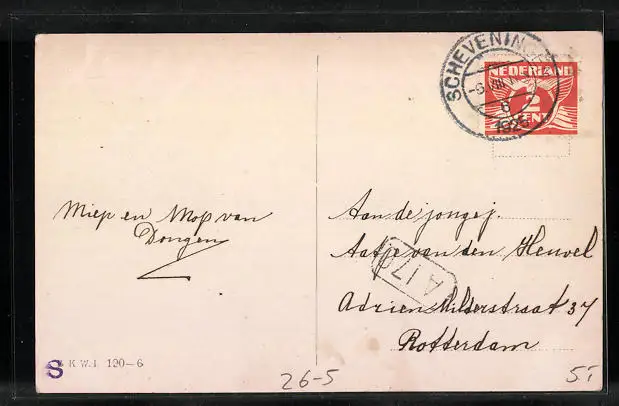 SCHEVENINGEN
1926
NEDERLAND
2
CENT
Miep en Mop van
Dongen
Aan de jongej.
Aatje van den Heuvel
Adrien Milderstraat 37
Rotterdam
A 170
K.W.I. 190-6
26-5
5.-